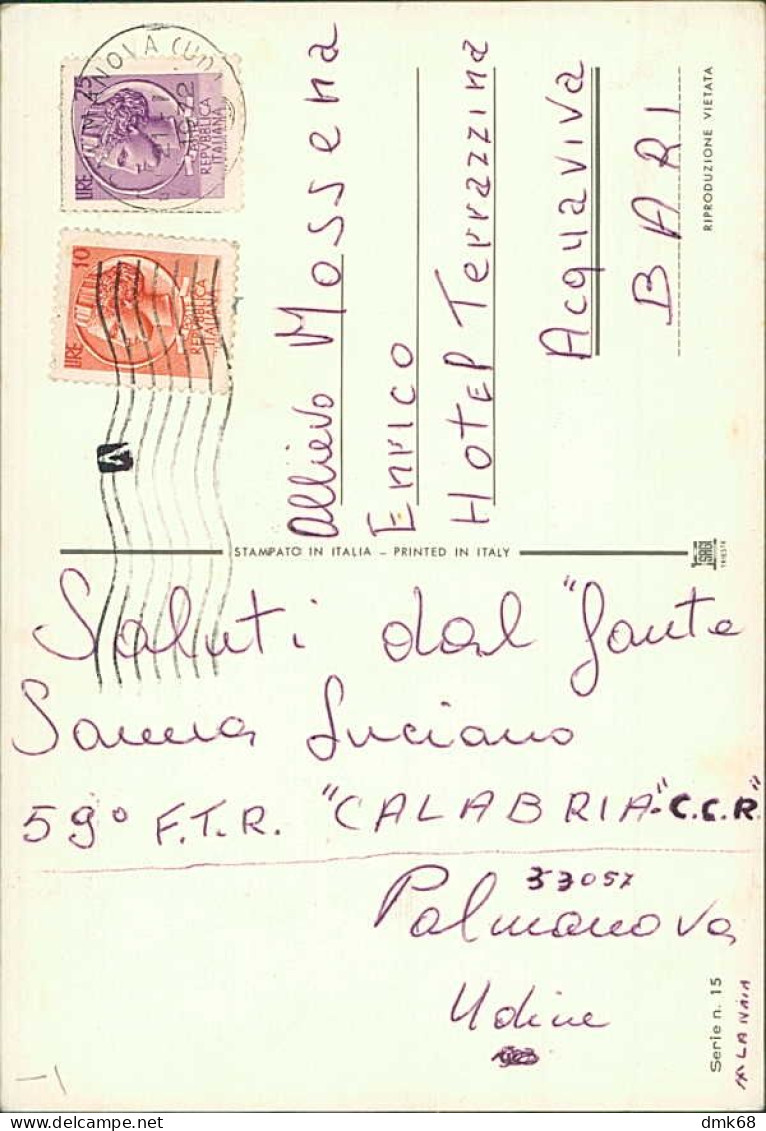 LIRE 25
REPVBBLICA
ITALIANA
LIRE 10
REPVBBLICA
ITALIANA
Allievo Mossena
Enrico
Hotel Terrazzina
Acquaviva
BARI
RIPRODUZIONE VIETATA
STAMPATO IN ITALIA – PRINTED IN ITALY
TRIESTE
Saluti dal "fante
Sanna Luciano
59° F.T.R. "CALABRIA" C.C.R."
33057
Palmanova
Udine
Serie n. 15
LA NAIA
dmk68